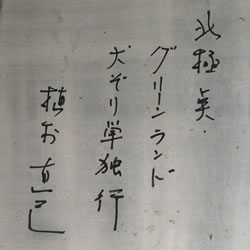 北極点.
グリーンランド
犬ぞり単独行
植村直己